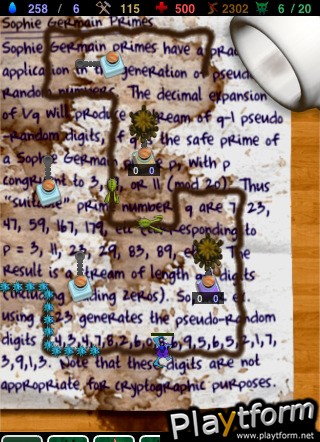 258 / 6 115 500 2302 6 / 20
Sophie Germain Primes
Sophie Germain primes have a
application in the generation of pseudo
Random numbers. The decimal expansion
of Vq will produce ream of q-1 pseudo
-random digits, if q the safe prime of
a Sophie Germain p, with p
0 0
cong to 3, or 11 (mod 20). Thus
"suit prime number q are 7, 23,
47, 59, 167, 179, responding to
p = 3, 11, 23, 29, 83, 89, The
Result is a ream of length digits
(including ding zeros). So
0 0
using 23 generates the pseudo-random
digits 4,3,4,7,8,2,6, 6,9,5,6,5,2,1,7,
3,9,1,3. Note that these digits are not
appropriate for cryptographic purposes.
Playtform
www.playtform.net